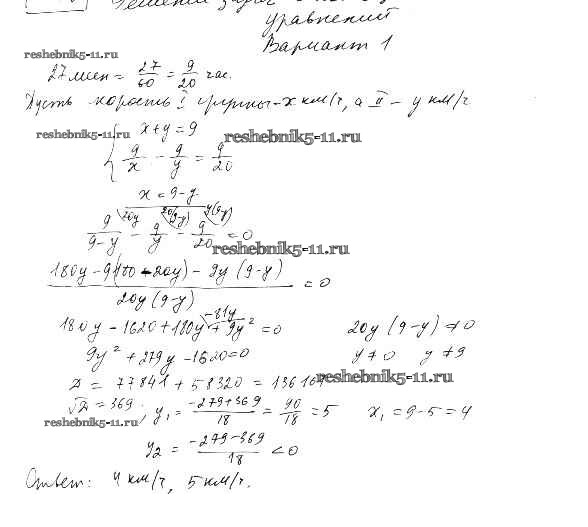 уравнений
Вариант 1
reshebnik5-11.ru
27 мин = 27/60 = 9/20 час.
Пусть скорость I группы - x км/ч, а II - y км/ч
reshebnik5-11.ru
{ x + y = 9
reshebnik5-11.ru
9/x - 9/y = 9/20
x = 9 - y
9/(9-y) - 9/y - 9/20 = 0
reshebnik5-11.ru
20y(9-y)
= 0
180y - 1620 + 180y - 81y + 9y² = 0 20y (9-y) ≠ 0
9y² + 279y - 1620 = 0 y ≠ 0 y ≠ 9
D = 77841 + 58320 = 136161
reshebnik5-11.ru
√D = 369, y₁ = (-279+369)/18 = 90/18 = 5 x₁ = 9-5 = 4
reshebnik5-11.ru
y₂ = (-279-369)/18 < 0
Ответ: 4 км/ч, 5 км/ч.